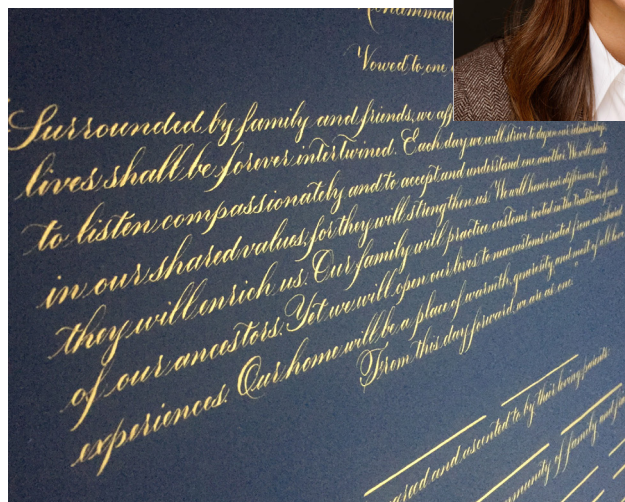 Mohammad
Vowed to one
Surrounded by family and friends, we
lives shall be forever intertwined. Each day we will strive to deepen our relationship
to listen compassionately and to accept and understand one another. We will unite
in our shared values, for they will strengthen us. We will honor our differences, for
they will enrich us. Our family will practice customs rooted in the traditions of each
of our ancestors. Yet we will open our lives to new customs created from our shared
experiences. Our home will be a place of warmth, generosity, and most of all love.
From this day forward, we are as one."
and assented to by their loving parents:
of family and